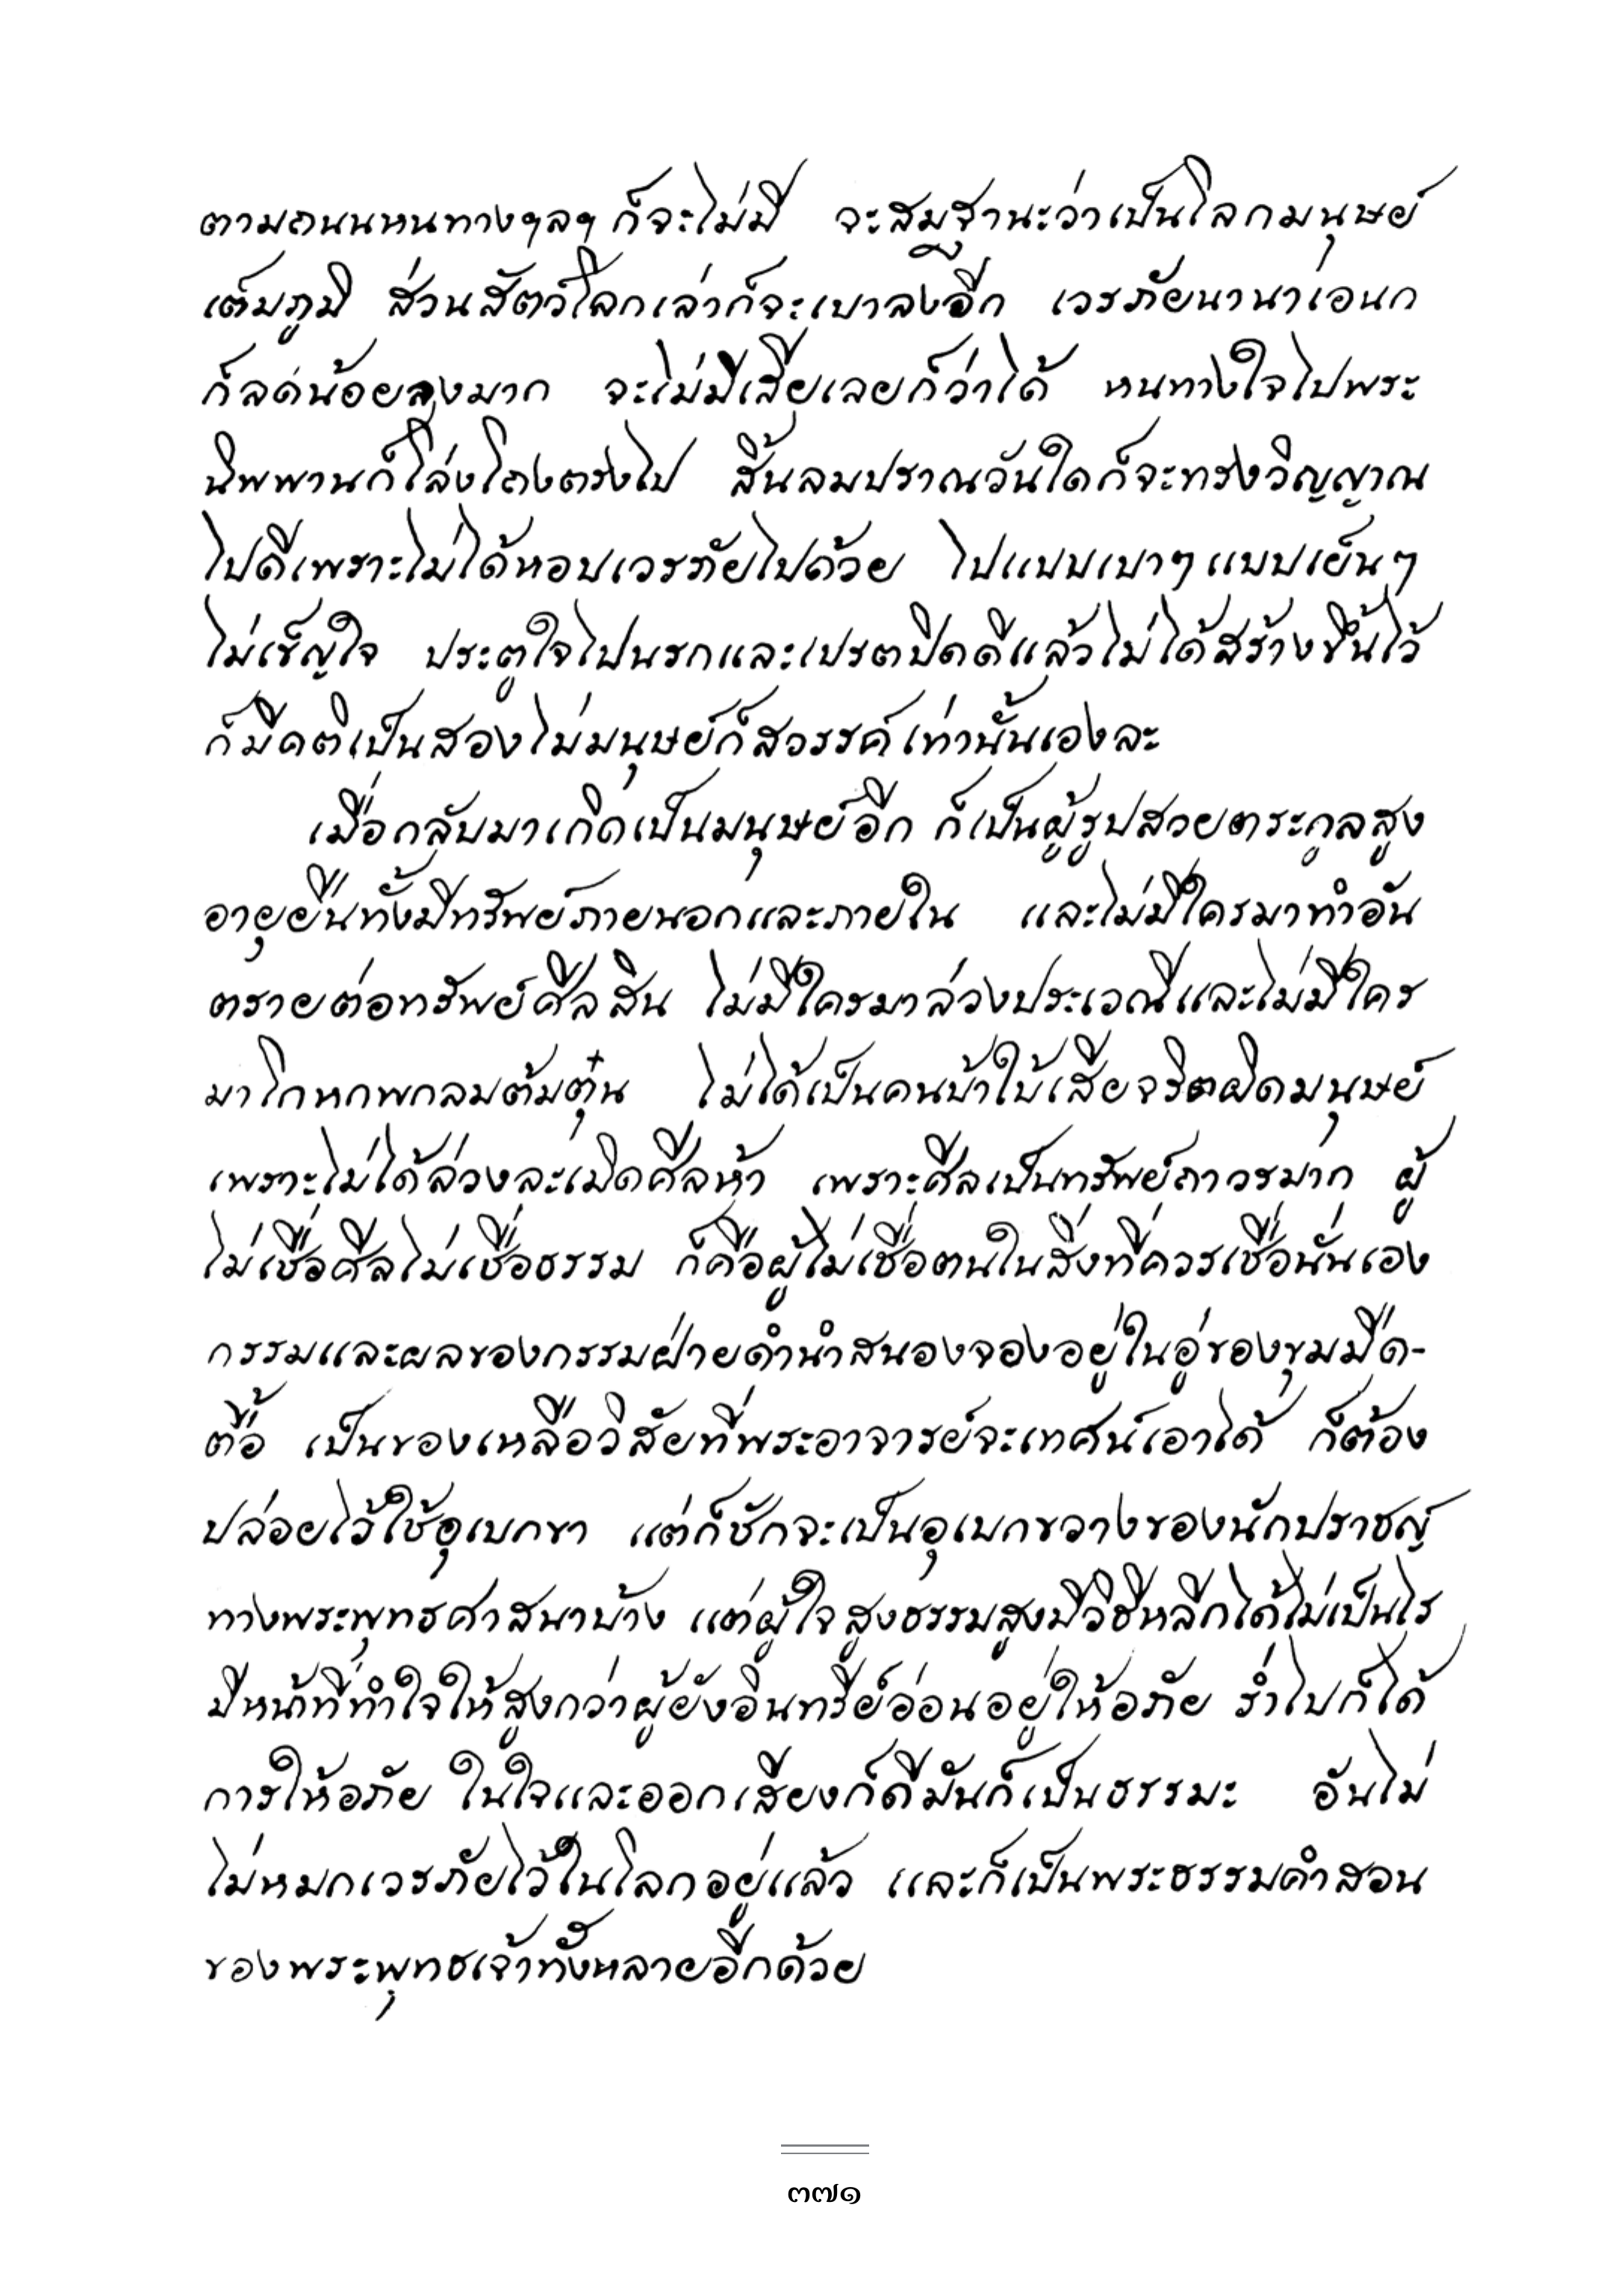 ตามถนนหนทางฯลฯ ก็จะไม่มี จะสมฐานะว่าเป็นโลกมนุษย์
เต็มภูมิ ส่วนสัตว์โลกเล่าก็จะเบาลงอีก เวรภัยนานาเอนก
ก็ลดน้อยลงมาก จะไม่มีเสียเลยก็ว่าได้ หนทางใจไปพระ
นิพพานก็โล่งโถงตรงไป สิ้นลมปราณวันใดก็จะทรงวิญญาณ
ไปดีเพราะไม่ได้หอบเวรภัยไปด้วย ไปแบบเบาๆ แบบเย็นๆ
ไม่เข็ญใจ ประตูใจไปนรกและเปรตปิดดีแล้วไม่ได้สร้างขึ้นไว้
ก็มีคติเป็นสองไม่มนุษย์ก็สวรรค์เท่านั้นเองละ
เมื่อกลับมาเกิดเป็นมนุษย์อีก ก็เป็นผู้รูปสวยตระกูลสูง
อายุยืนทั้งมีทรัพย์ภายนอกและภายใน และไม่มีใครมาทำอัน
ตรายต่อทรัพย์ศีลสิน ไม่มีใครมาล่วงประเวณีและไม่มีใคร
มาโกหกพกลมต้มตุ๋น ไม่ได้เป็นคนบ้าใบ้เสียจริตผิดมนุษย์
เพราะไม่ได้ล่วงละเมิดศีลห้า เพราะศีลเป็นทรัพย์ถาวรมาก ผู้
ไม่เชื่อศีลไม่เชื่อธรรม ก็คือผู้ไม่เชื่อตนในสิ่งที่ควรเชื่อนั่นเอง
กรรมและผลของกรรมฝ่ายดำนำสนองจองอยู่ในอู่ของขุมมืด-
ตื้อ เป็นของเหลือวิสัยที่พระอาจารย์จะเทศน์เอาได้ ก็ต้อง
ปล่อยไว้ใช้อุเบกขา แต่ก็ชักจะเป็นอุเบกขวางของนักปราชญ์
ทางพระพุทธศาสนาบ้าง แต่ผู้ใจสูงธรรมสูงมีวิธีหลีกได้ไม่เป็นไร
มีหน้าที่ทำใจให้สูงกว่าผู้ยังอินทรีย์อ่อนอยู่ให้อภัย ร่ำไปก็ได้
การให้อภัย ในใจและออกเสียงก็ดีมันก็เป็นธรรมะ อันไม่
ไม่หมกเวรภัยไว้ในโลกอยู่แล้ว และก็เป็นพระธรรมคำสอน
ของพระพุทธเจ้าทั้งหลายอีกด้วย
๓๗๑